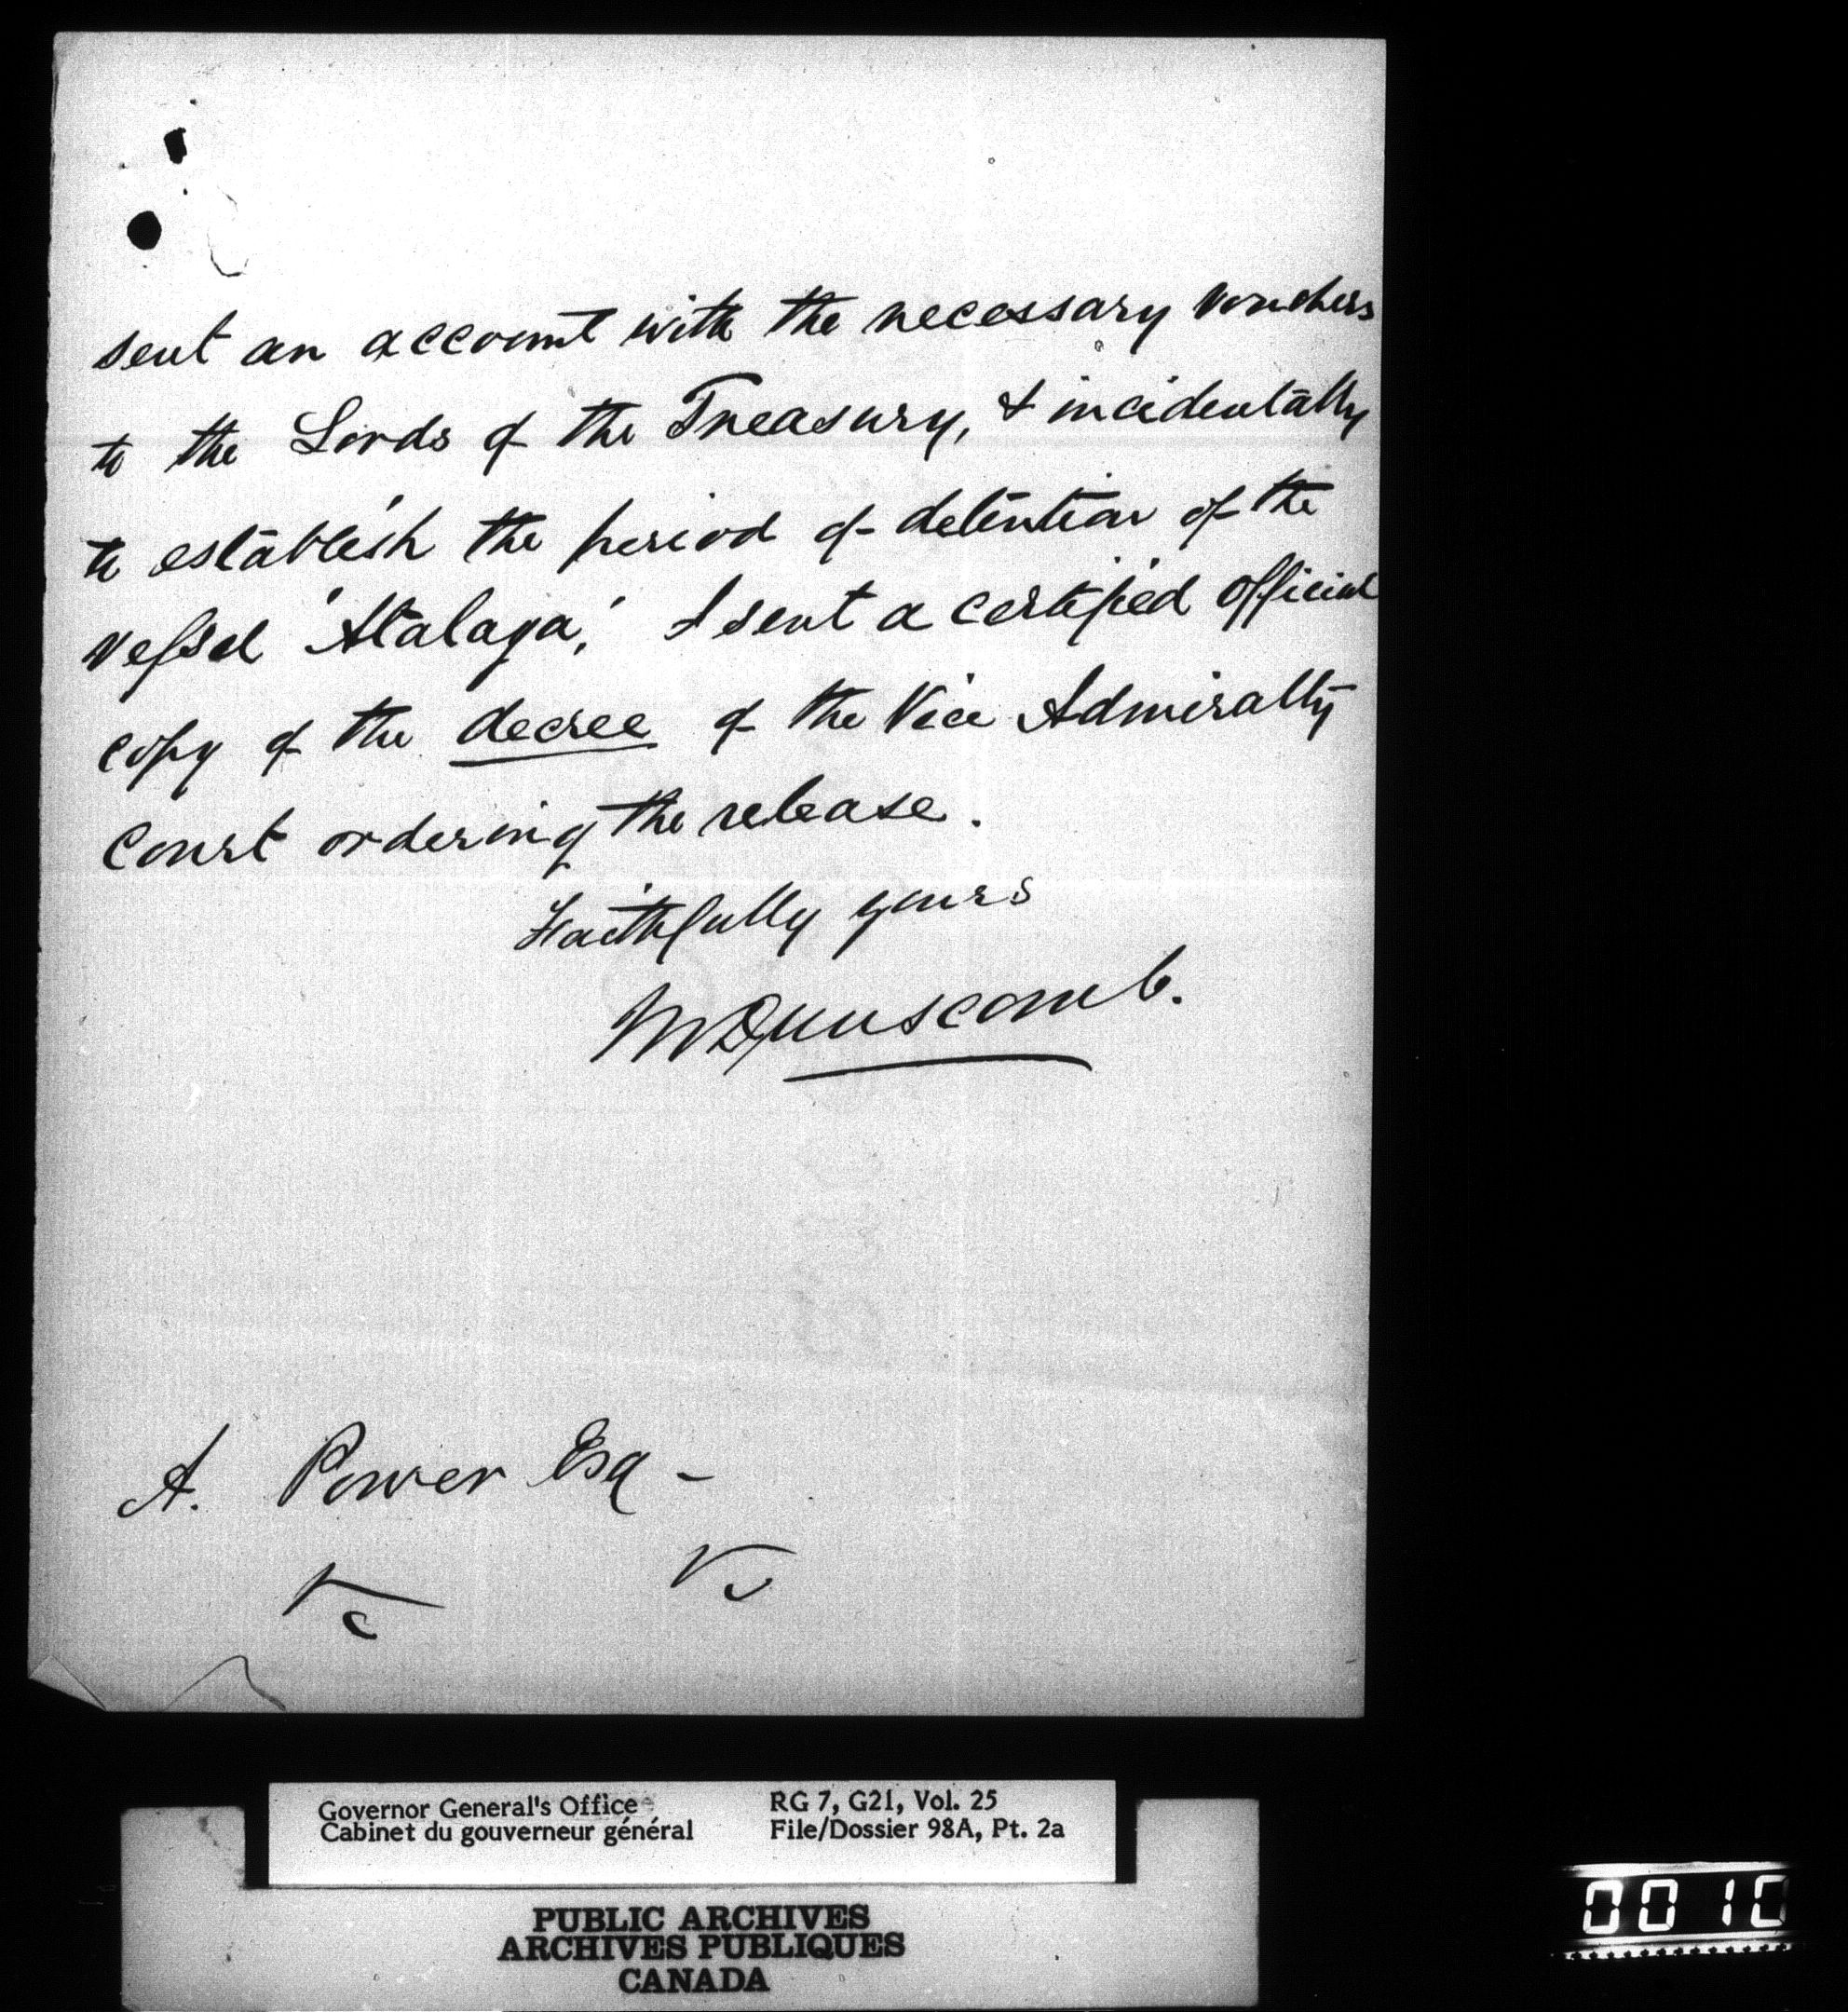 sent an account with the necessary vouchers
to the Lords of the Treasury, & incidentally
to establish the period of detention of the
vessel 'Atalaya,' I sent a certified official
copy of the decree of the Vice Admiralty
Court ordering the release.
Faithfully yours
W Dunscomb.
A. Power Esq -
Governor General's Office
Cabinet du gouverneur général
RG 7, G21, Vol. 25
File/Dossier 98A, Pt. 2a
PUBLIC ARCHIVES
ARCHIVES PUBLIQUES
CANADA
0010